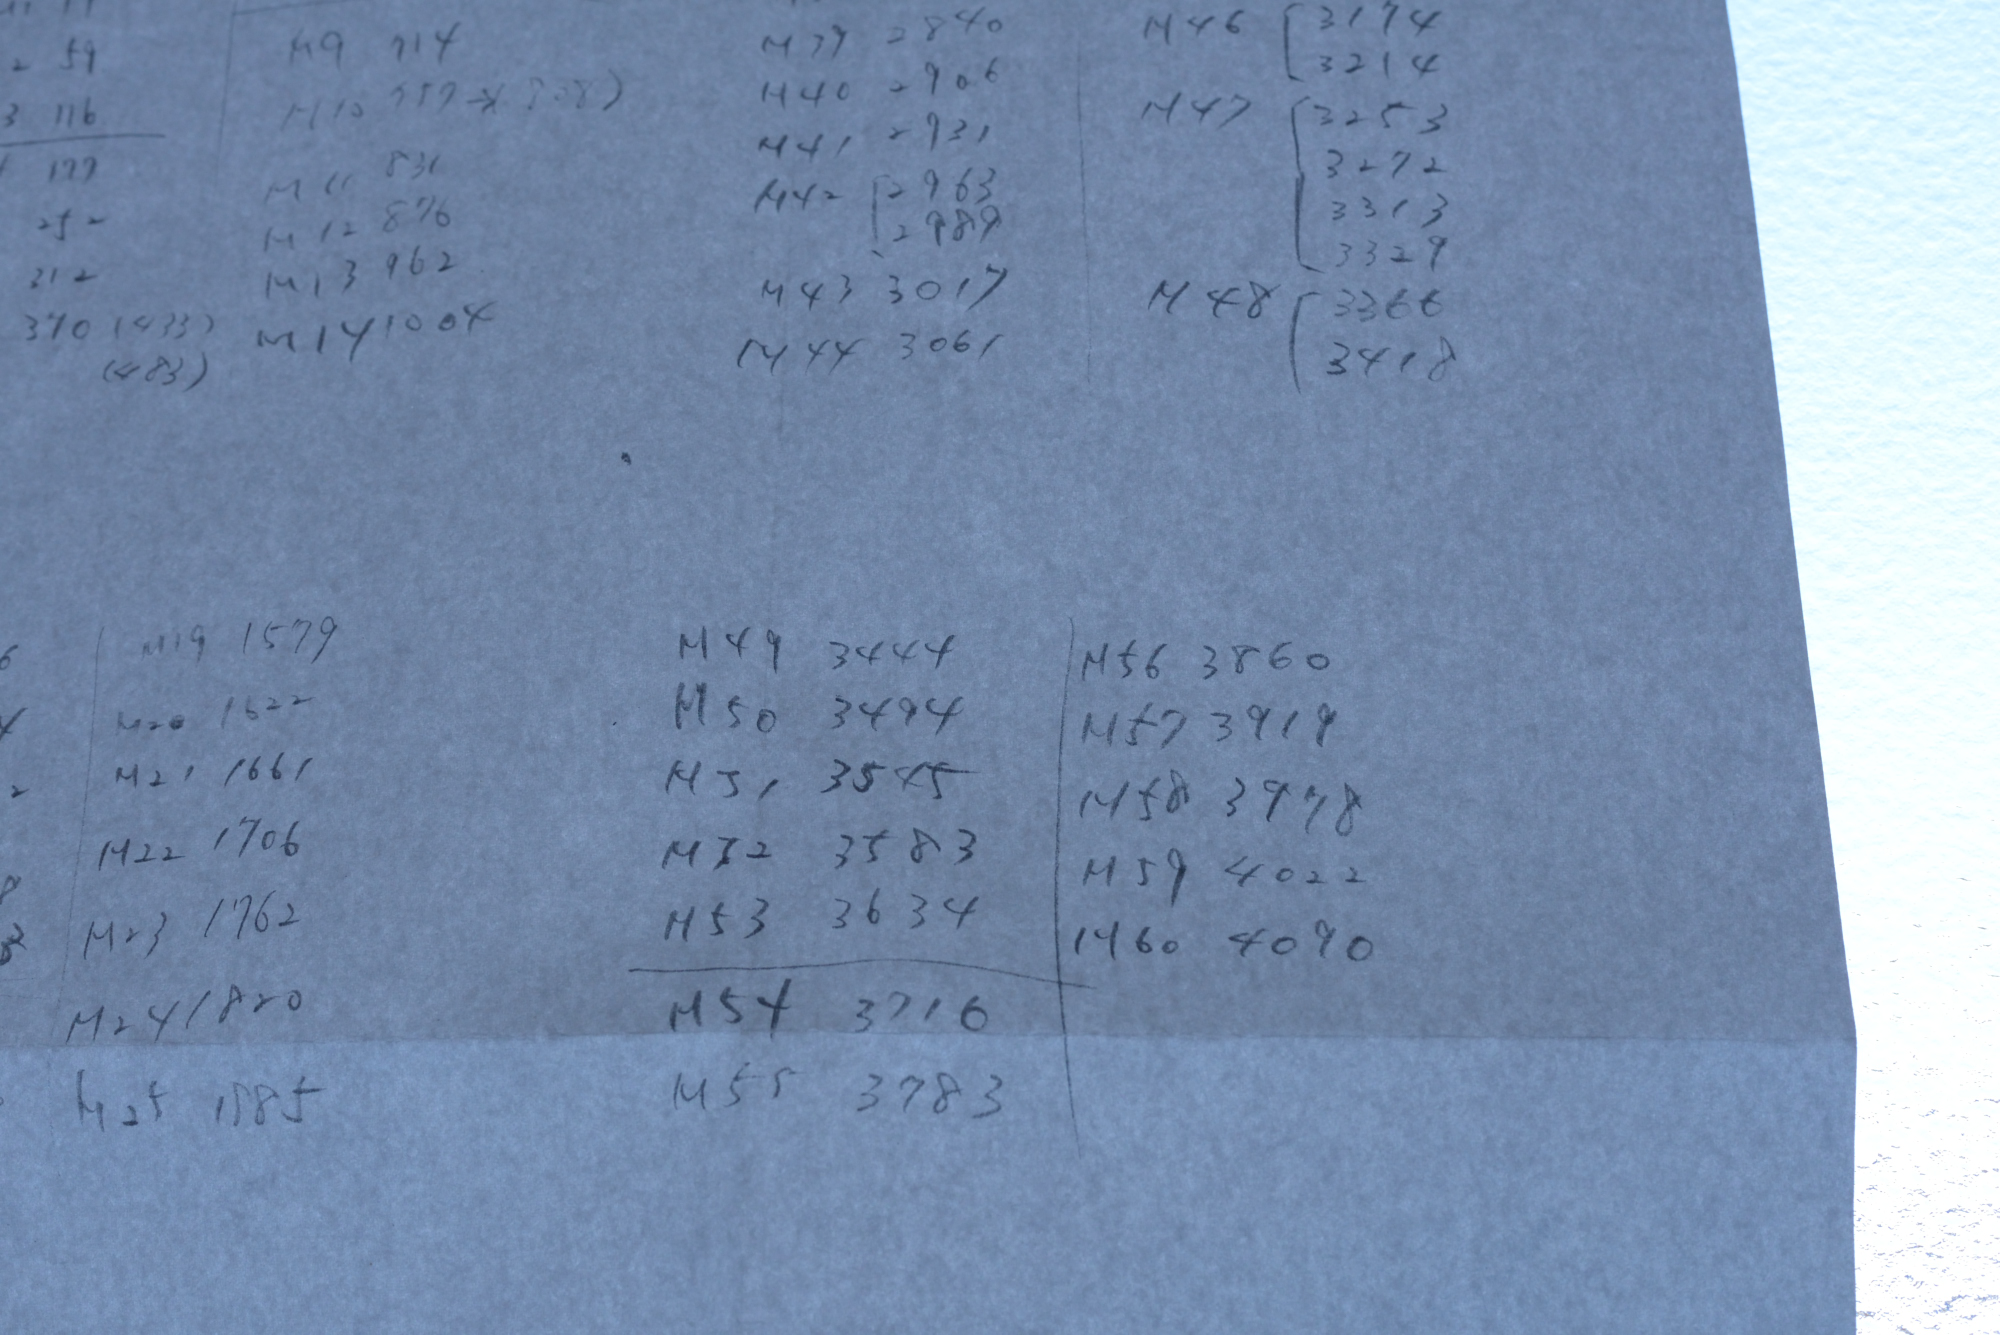 59
3 116
177
252
312
370 (433)
(483)
M9 714
M10
M11 831
M12 876
M13 962
M14 1004
M39 2840
M40 2906
M41 2931
M42 2963
2989
M43 3017
M44 3061
M46 3174
3214
M47 3253
3272
3313
3329
M48 3366
3418
M19 1579
M20 1622
M21 1661
M22 1706
M23 1762
M24 1820
M25 1885
M49 3444
M50 3494
M51 3545
M52 3583
M53 3634
M54 3716
M55 3783
M56 3860
M57 3919
M58 3978
M59 4022
M60 4090